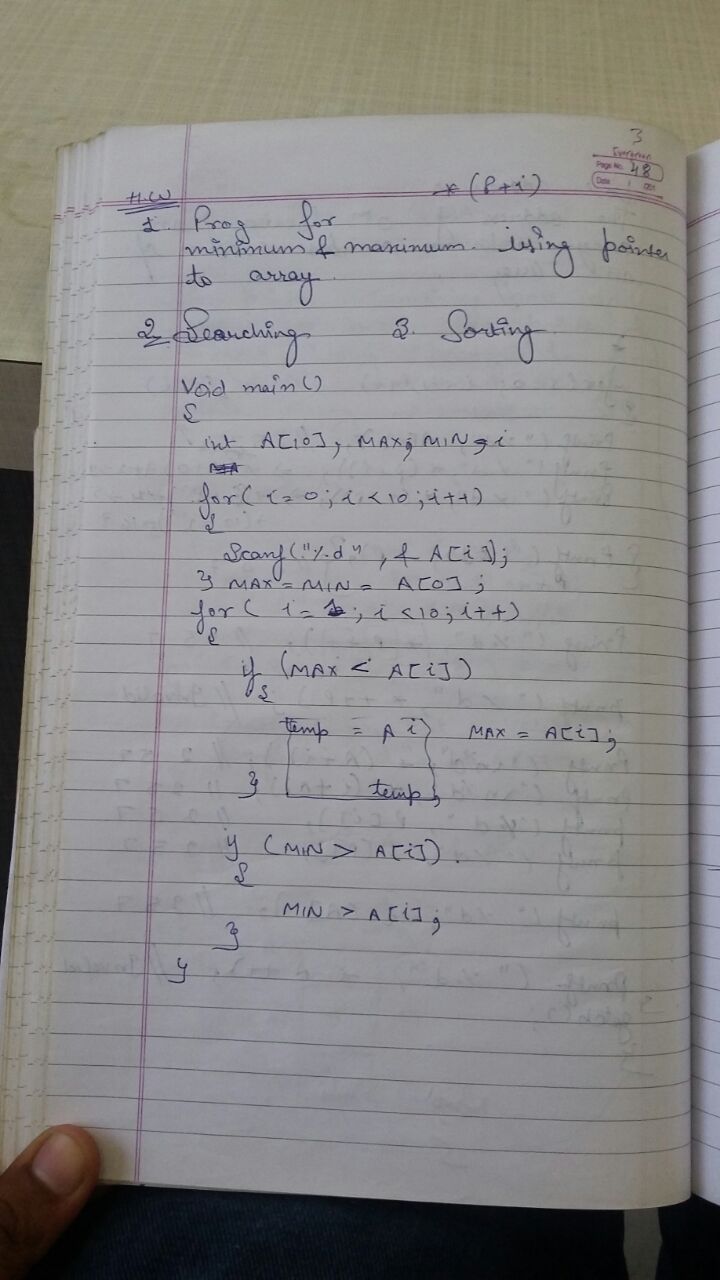 3
Evergreen
Page No. 48
Date / /201
H.W *(P+i)
1. Prog for
minimum & maximum. using pointer
to array.
2 Searching 3. Sorting
Void main()
{
int A[10], MAX, MIN, i
for( i=0; i<10; i++)
{
Scanf("%d", & A[i]);
} MAX = MIN = A[0];
for( i= ; i<10; i++)
{
if (MAX < A[i])
{
temp = A i MAX = A[i];
} temp,
if (MIN > A[i]).
{
MIN > A[i];
}
}